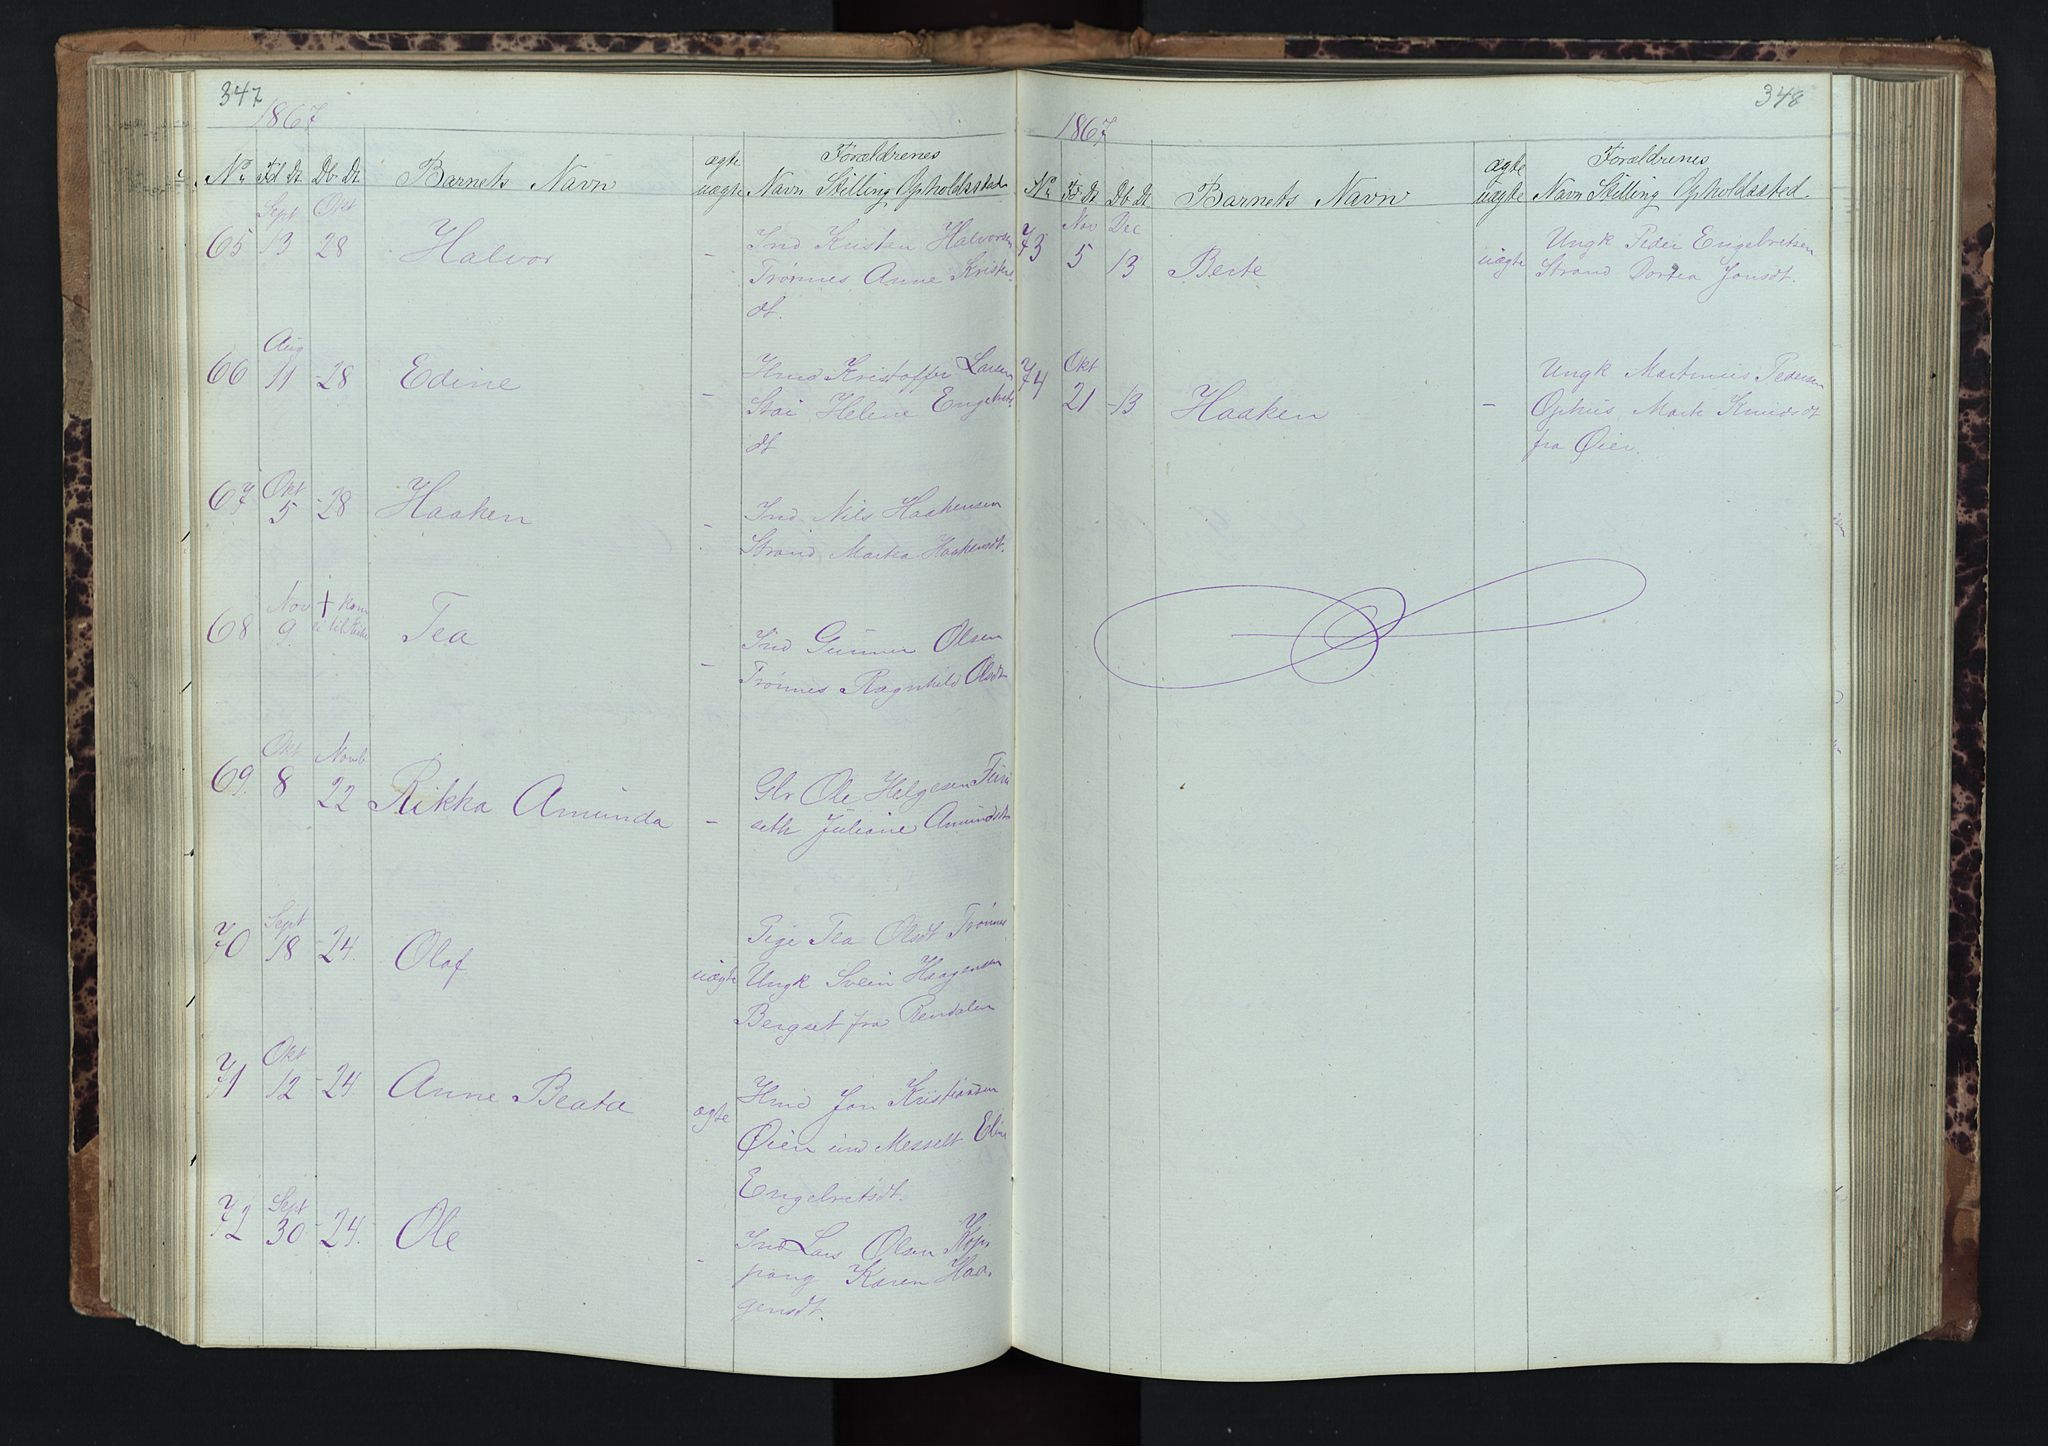 347
1867
No Fd Dt Db Dt Barnets Navn ægte uægte Forældrenes Navn Stilling Opholdssted
65 Sept 13 Okt 28 Halvor - Ind Kristen Halvorsen
Trønnes Anne Kristens
dt.
66 Aug 11 - 28 Edine - Hmd Kristoffer Larsen
Stai Helene Engebrets
dt
67 Okt 5 - 28 Haaken - Ind Nils Haakensen
Strand Martea Haakensdt.
68 Nov 9 + kom ei til Kirke Tea - Ind Gunner Olsen
Trønnes Ragnhild Olsdt
69. Okt 8 Novb 22 Rikka Amunda - Gbr Ole Helgesen
seth Juliane Amundsdt
70 Sept 18 - 24. Olaf uægte Pige Tea Olsdt Trønnes
Ungk Svein Haagensen
Bergset fra Rendalen
71 Okt 12 - 24 Anne Beata ægte Hmd Jon Kristiansen
Øien und Messelt Eline
Engebretsdt.
72 Sept 30 - 24. Ole - Ind Lars Olsen Kop
pang Karen Haa
gensdt.
348
1867
No Fd Dt Db Dt Barnets Navn ægte uægte Forældrenes Navn Stilling Opholdssted
73 Nov 5 Dec 13 Berte uægte Ungk Peder Engebretsen
Strand Dortea Jonsdt.
74 Okt 21 - 13 Haaken - Ungk Martinius Pedersen
Ophus, Marte Knudsdt
fra Øier.